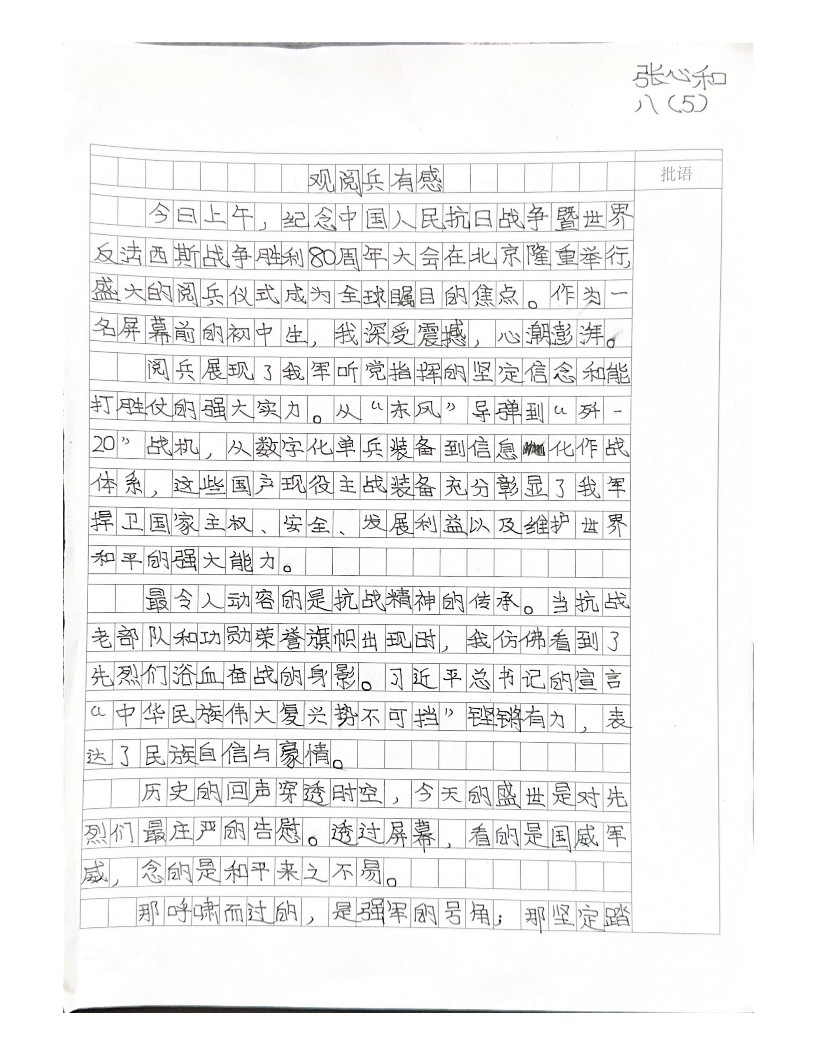 张心和
八(5)
观阅兵有感
批语
今日上午，纪念中国人民抗日战争暨世界
反法西斯战争胜利80周年大会在北京隆重举行，
盛大的阅兵仪式成为全球瞩目的焦点。作为一
名屏幕前的初中生，我深受震撼，心潮澎湃。
阅兵展现了我军听党指挥的坚定信念和能
打胜仗的强大实力。从“东风”导弹到“歼-
20”战机，从数字化单兵装备到信息化作战
体系，这些国产现役主战装备充分彰显了我军
捍卫国家主权、安全、发展利益以及维护世界
和平的强大能力。
最令人动容的是抗战精神的传承。当抗战
老部队和功勋荣誉旗帜出现时，我仿佛看到了
先烈们浴血奋战的身影。习近平总书记的宣言
“中华民族伟大复兴势不可挡”铿锵有力，表
达了民族自信与豪情。
历史的回声穿透时空，今天的盛世是对先
烈们最庄严的告慰。透过屏幕，看的是国威军
威，念的是和平来之不易。
那呼啸而过的，是强军的号角；那坚定踏